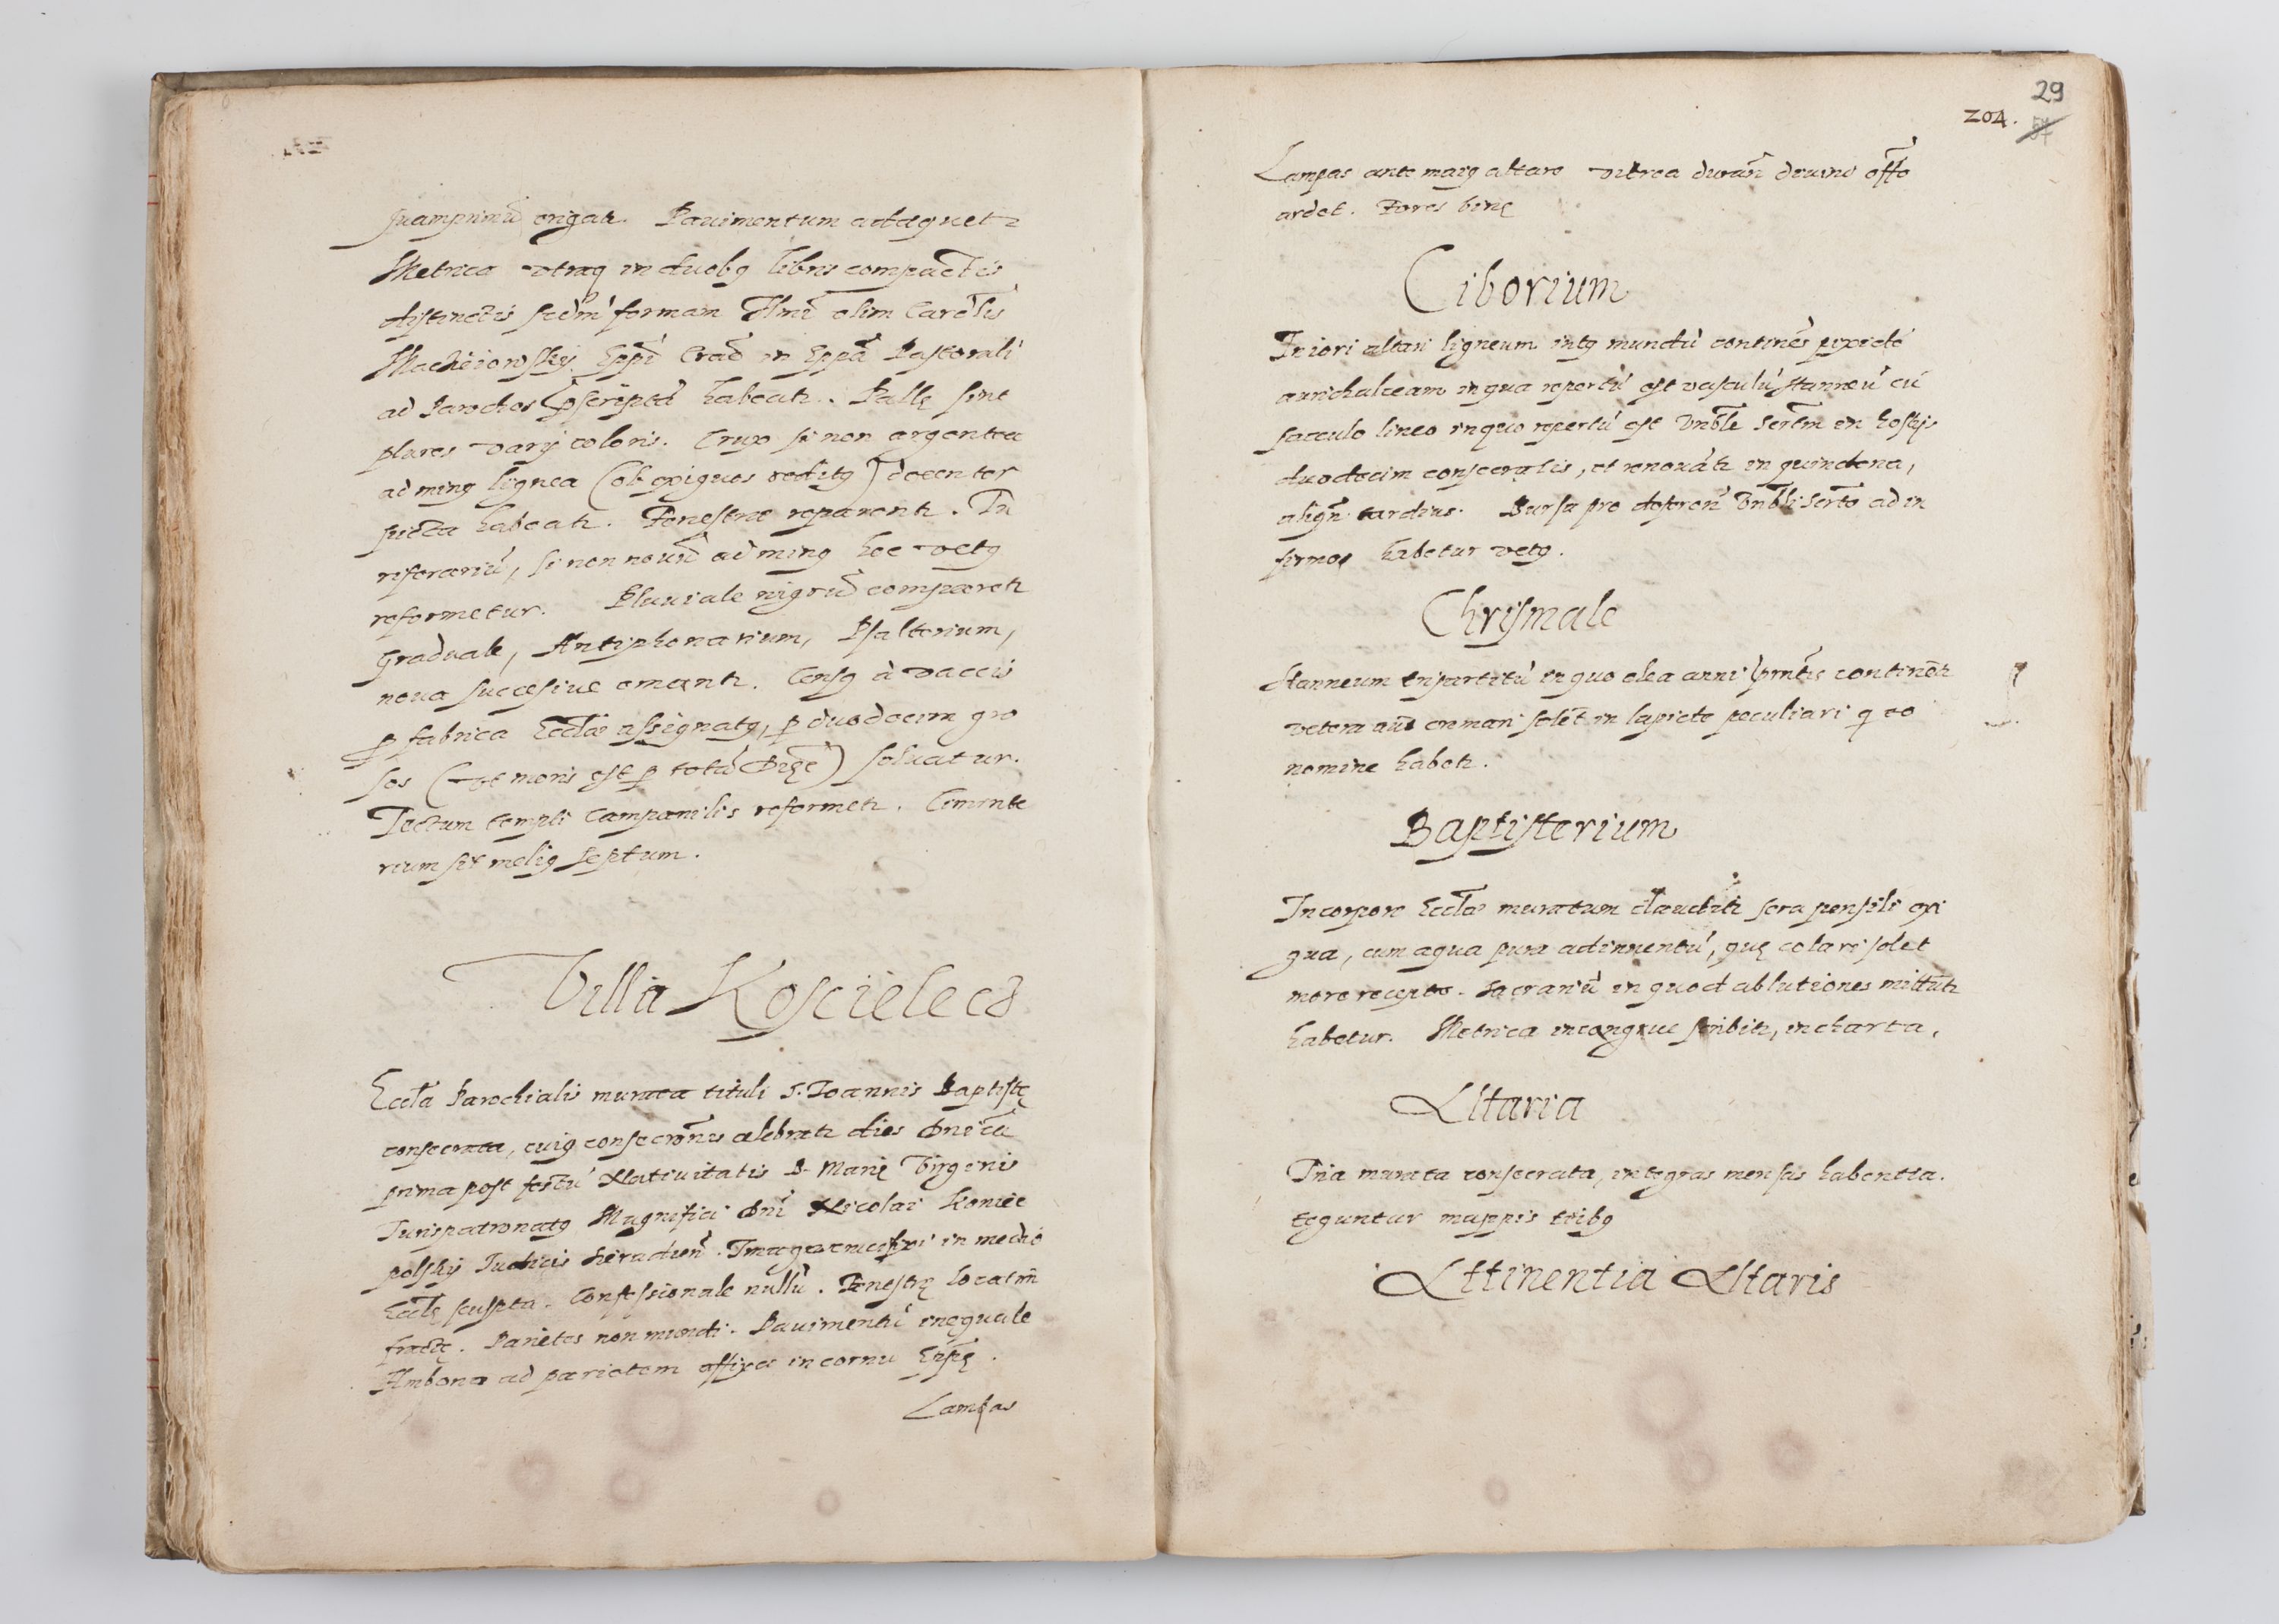 quamprimũ erigatr. Pauimentum adæquetr
Metrica vtraq in duobq libris compactis
distinctis scdm formam Illmi olim Cardlis
Macheiowskÿ Eppi Crac in Eppla Pastorali
ad Parochos pscripta habeatr. Pallę sint
plures varÿ coloris. Crux si non argentea
ad minq lignea (ob exiguos reditq) decenter
picta habeatr. Fenestræ reparentr. In
riforariũ, si non nouũ ad minq hoc vetq
reformetur. Pluuiale nigrũ comparetr
Graduale, Antiphonarium, Psalterium,
noua succesiue emantr. Censq à vaccis
p fabrica Ecclæ assignatq, p duodecim gro
sos (vt moris est p totã Diæc) soluatur.
Tectum templi Campanilis reformetr. Cimite
rium sit meliq septum.
Villa Koscielecz
Eccla Parochialis murata tituli S. Joannis Baptistę
consecrata, cuiq consecronis celebratr dies Dnica
prima post festũ Natiuitatis B. Marię Virginis
Jurispatronatq Magnifici Dni Nicolai Koniec
polskÿ Judicis Siradien. Imago crucifixi in medio
Ecclę sculpta. Confessionale nullũ. Fenestrę locatim
fractę. Parietes non mundi. Pauimentũ inęquale
Ambona ad parietem affixa in cornu Eplę.
Lampas
29
204.
Lampas ante maiq altare vitrea duran diuino offo
ardet. Fores binę
Ciborium
In iori altari ligneum intq mundũ continẽs pixidẽ
aurichalceam in qua repertũ est vasculũ stanneũ cũ
sacculo lineo in quo repertũ est Vnble Sertm in hostÿs
duodecim consecratis, et renouatr in quindena,
aliqñ tardius. Bursa pro deferen Vnbli Serto ad in
firmos habetur vetq.
Chrismale
Stanneum tripartitũ in quo olea anni pntis continentr
vetera aũt cremari solẽt in lapide peculiari q eo
nomine habetr.
Baptisterium
In corpore Ecclæ muratum clauditr sera pensili exi
gua, cum aqua pura adinuentũ, quę colari solet
more recepto. Sacrariũ in quod ablutiones mittũtr
habetur. Metrica incongrue scribitr, in charta,
Altaria
Tria murata consecrata, integras mensas habentia.
teguntur mappis tribq
Attinentia Altaris